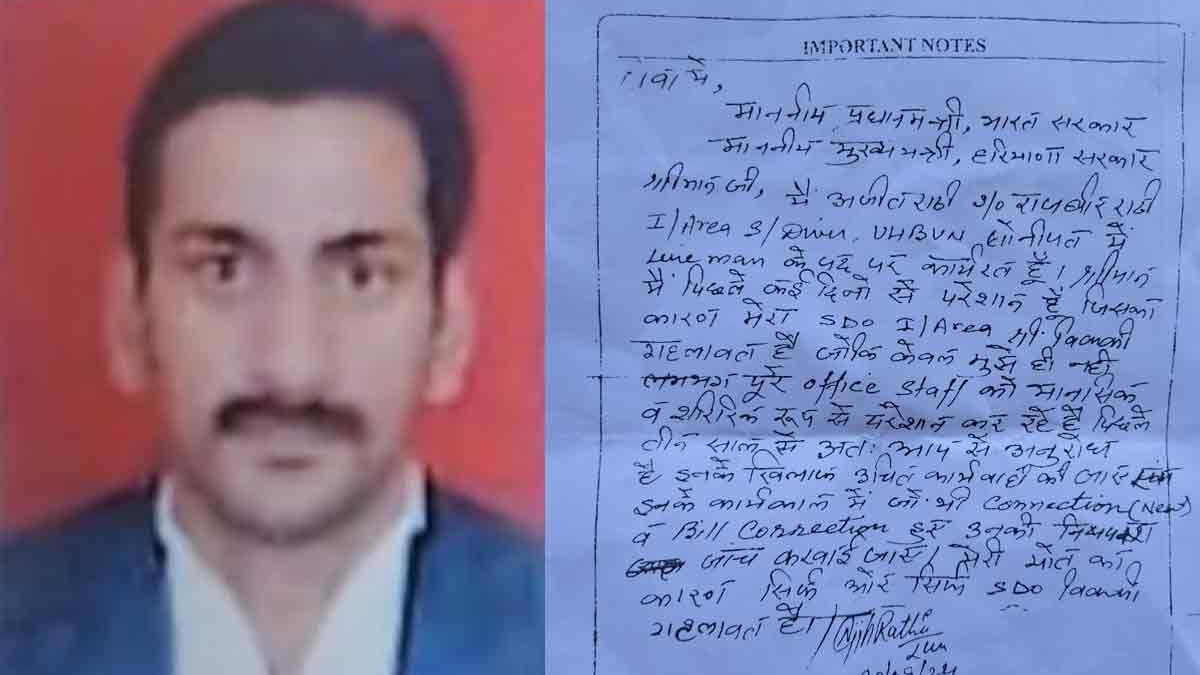 IMPORTANT NOTES
सेवा में,
माननीय प्रधानमन्त्री, भारत सरकार
माननीय मुख्यमन्त्री, हरियाणा सरकार
श्रीमान जी, मैं अजीत राठी S/o राजबीर राठी
I/Area S/Divn. UHBVN सोनीपत में
Line man के पद पर कार्यरत हूँ। श्रीमान
मैं पिछले कई दिनों से परेशान हूँ जिसका
कारण मेरा SDO I/Area श्री
गहलावत है जोकि केवल मुझे ही नही
पूरे office staff को मानसिक
व शारिरिक रूप से परेशान कर रहे हैं पिछले
तीन साल से अतः आप से अनुरोध
है इनके खिलाफ उचित कार्यवाही की जाए
इनके कार्यकाल में जो भी Connection (New)
व Bill Correction हुए उनकी
जांच करवाई जाए। मेरी मौत का
कारण सिर्फ और सिर्फ SDO
गहलावत है।
Ajit Rathi
LM